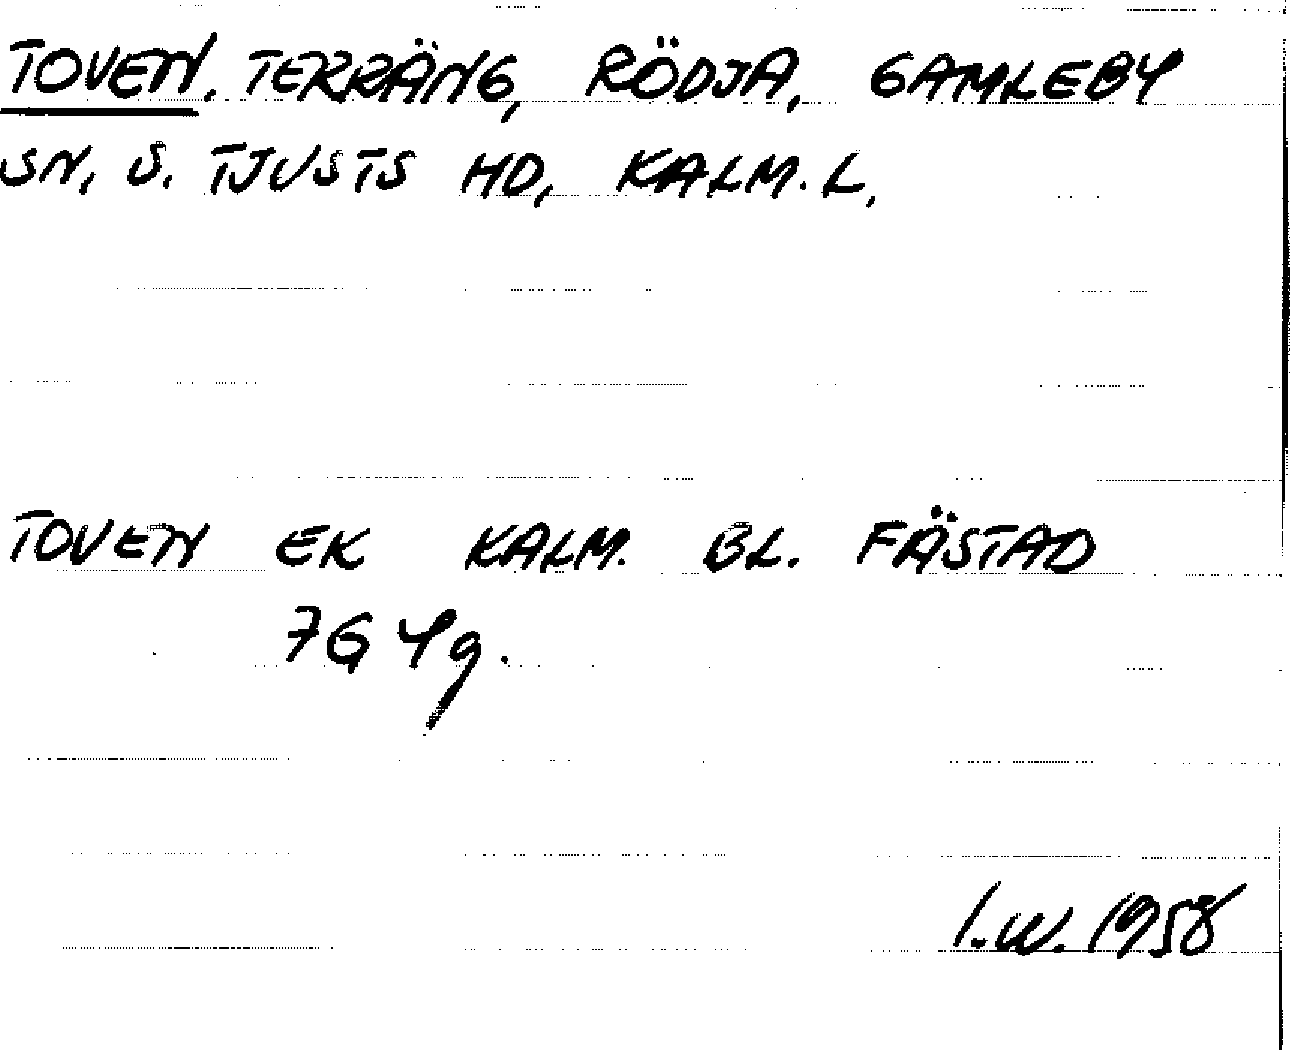 TOVEN. TERRÄNG, RÖDJA, GAMLEBY
SN, S. TJUSTS HD, KALM. L,
TOVEN EK KALM. BL. FÄSTAD
7G 4g.
I.W. 1958